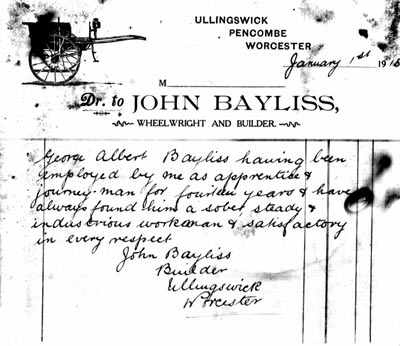 ULLINGSWICK
PENCOMBE
WORCESTER
January 1st 191
M
Dr. to JOHN BAYLISS,
WHEELWRIGHT AND BUILDER.
George Albert Bayliss having been
employed by me as apprentice &
journey-man for fourteen years & have
always found him a sober steady &
industrious workman & satisfactory
in every respect
John Bayliss
Builder
Ullingswick
Worcester